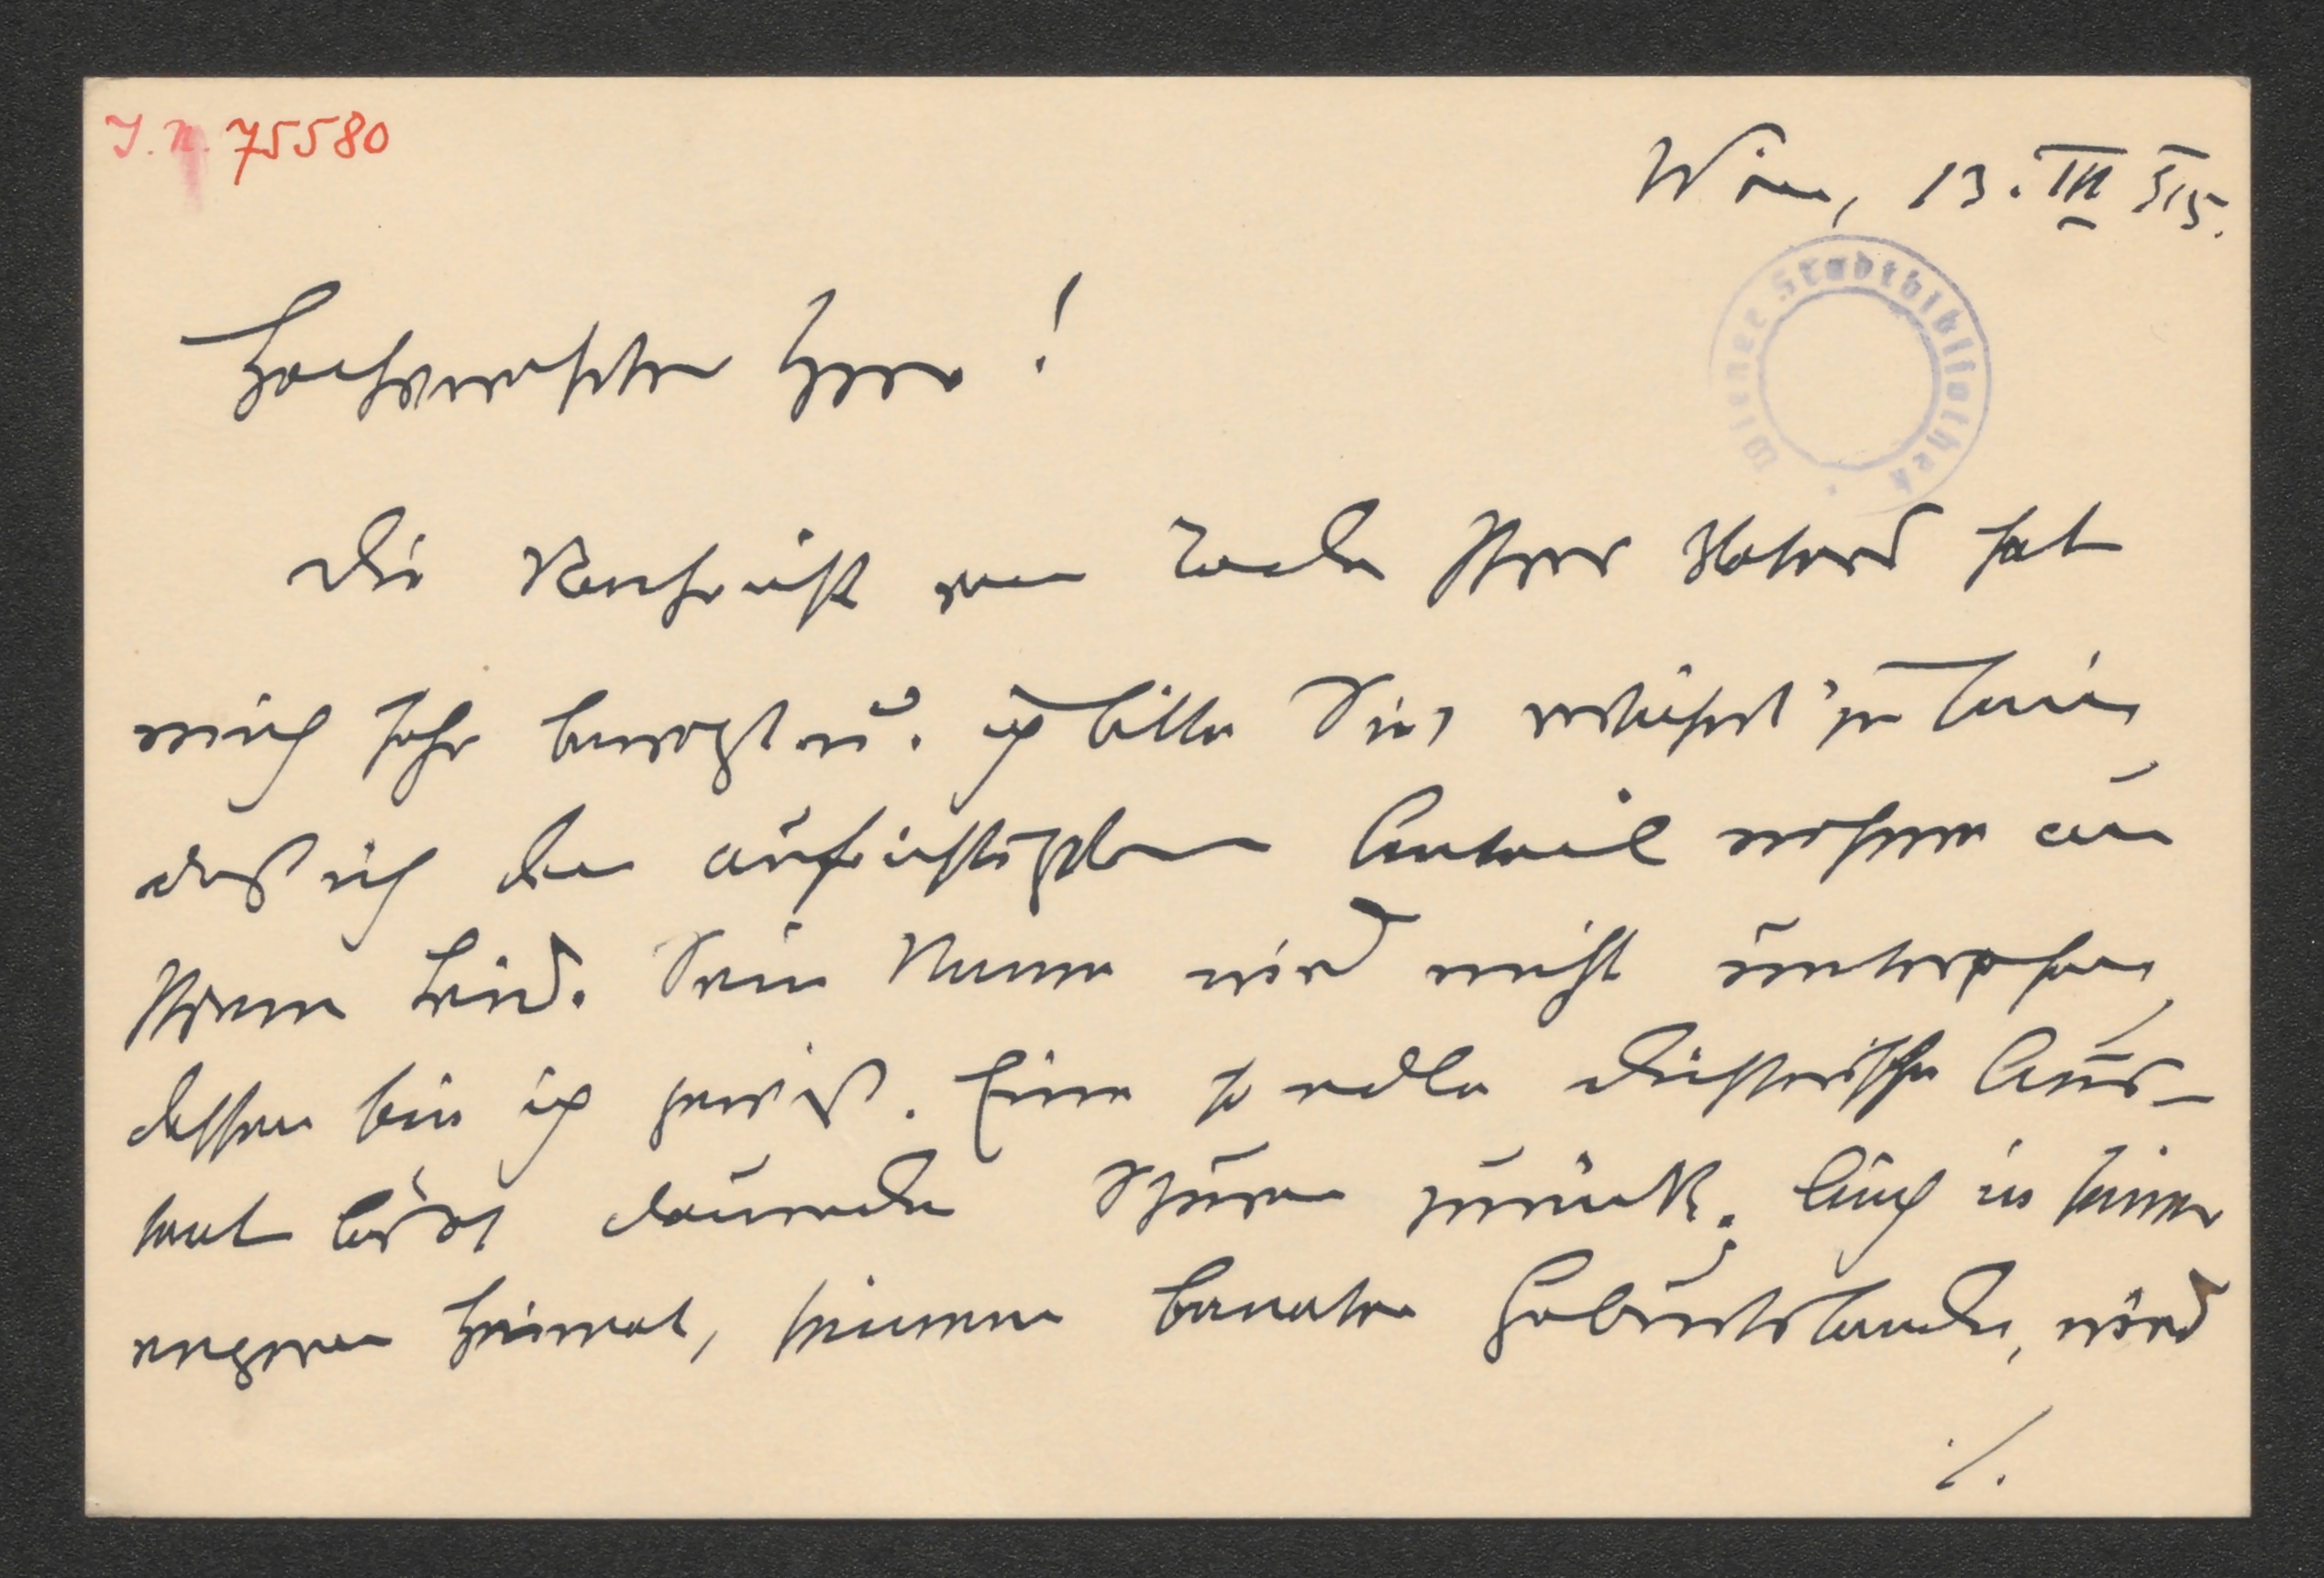 I. N. 75580
Wien, 13. III 915.
Wiener Stadtbibliothek
Hochverehrter Herr!
Die Nachricht vom Tode Ihres Vaters hat
mich sehr bewegt u. ich bitte Sie, versichert zu sein,
daß ich den aufrichtigsten Anteil nehme an
Ihrem Leid. Sein Name wird nicht untergehen,
dessen bin ich gewiß. Eine so edle dichterische
dauernde Spuren zurück. Auch in seiner
engeren Heimat, seinem banater Geburtslande, wird
./.